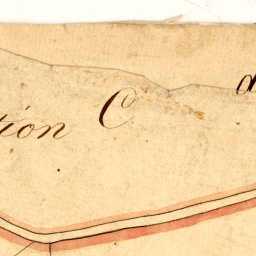 tion C d